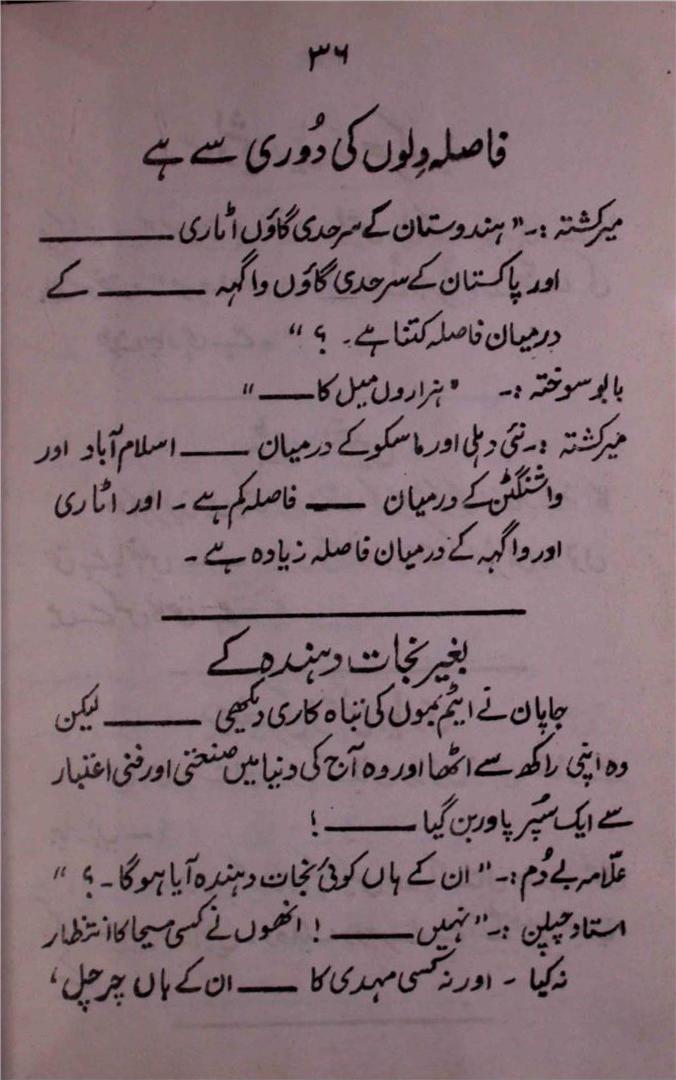 ۳۶
فاصلہ دِلوں کی دُوری سے ہے
میر کشتہ :۔ " ہندوستان کے سرحدی گاؤں اٹاری ———
اور پاکستان کے سرحدی گاؤں واگہہ ——— کے
درمیان فاصلہ کتنا ہے۔ ؟ "
بابو سوختہ :۔ " ہزاروں میل کا —— "
میر کشتہ :۔ نئی دہلی اور ماسکو کے درمیان —— اسلام آباد اور
واشنگٹن کے درمیان —— فاصلہ کم ہے ۔ اور اٹاری
اور واگہہ کے درمیان فاصلہ زیادہ ہے ۔
بغیر نجات دہندہ کے
جاپان نے ایٹم بموں کی تباہ کاری دیکھی ——— لیکن
وہ اپنی راکھ سے اٹھا اور وہ آج کی دنیا میں صنعتی اور فنی اعتبار
سے ایک سُپر پاور بن گیا ——— !
علّامہ بے دُم :۔ " ان کے ہاں کوئی نجات دہندہ آیا ہوگا ۔ ؟ "
استاد چپلن :۔ " نہیں ——— ! انھوں نے کسی مسیحا کا انتظار
نہ کیا ۔ اور نہ کسی مہدی کا —— ان کے ہاں چرچل ،